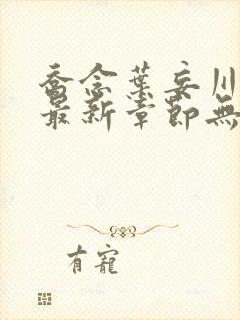 喬念葉妄川
最新章節無
有寵